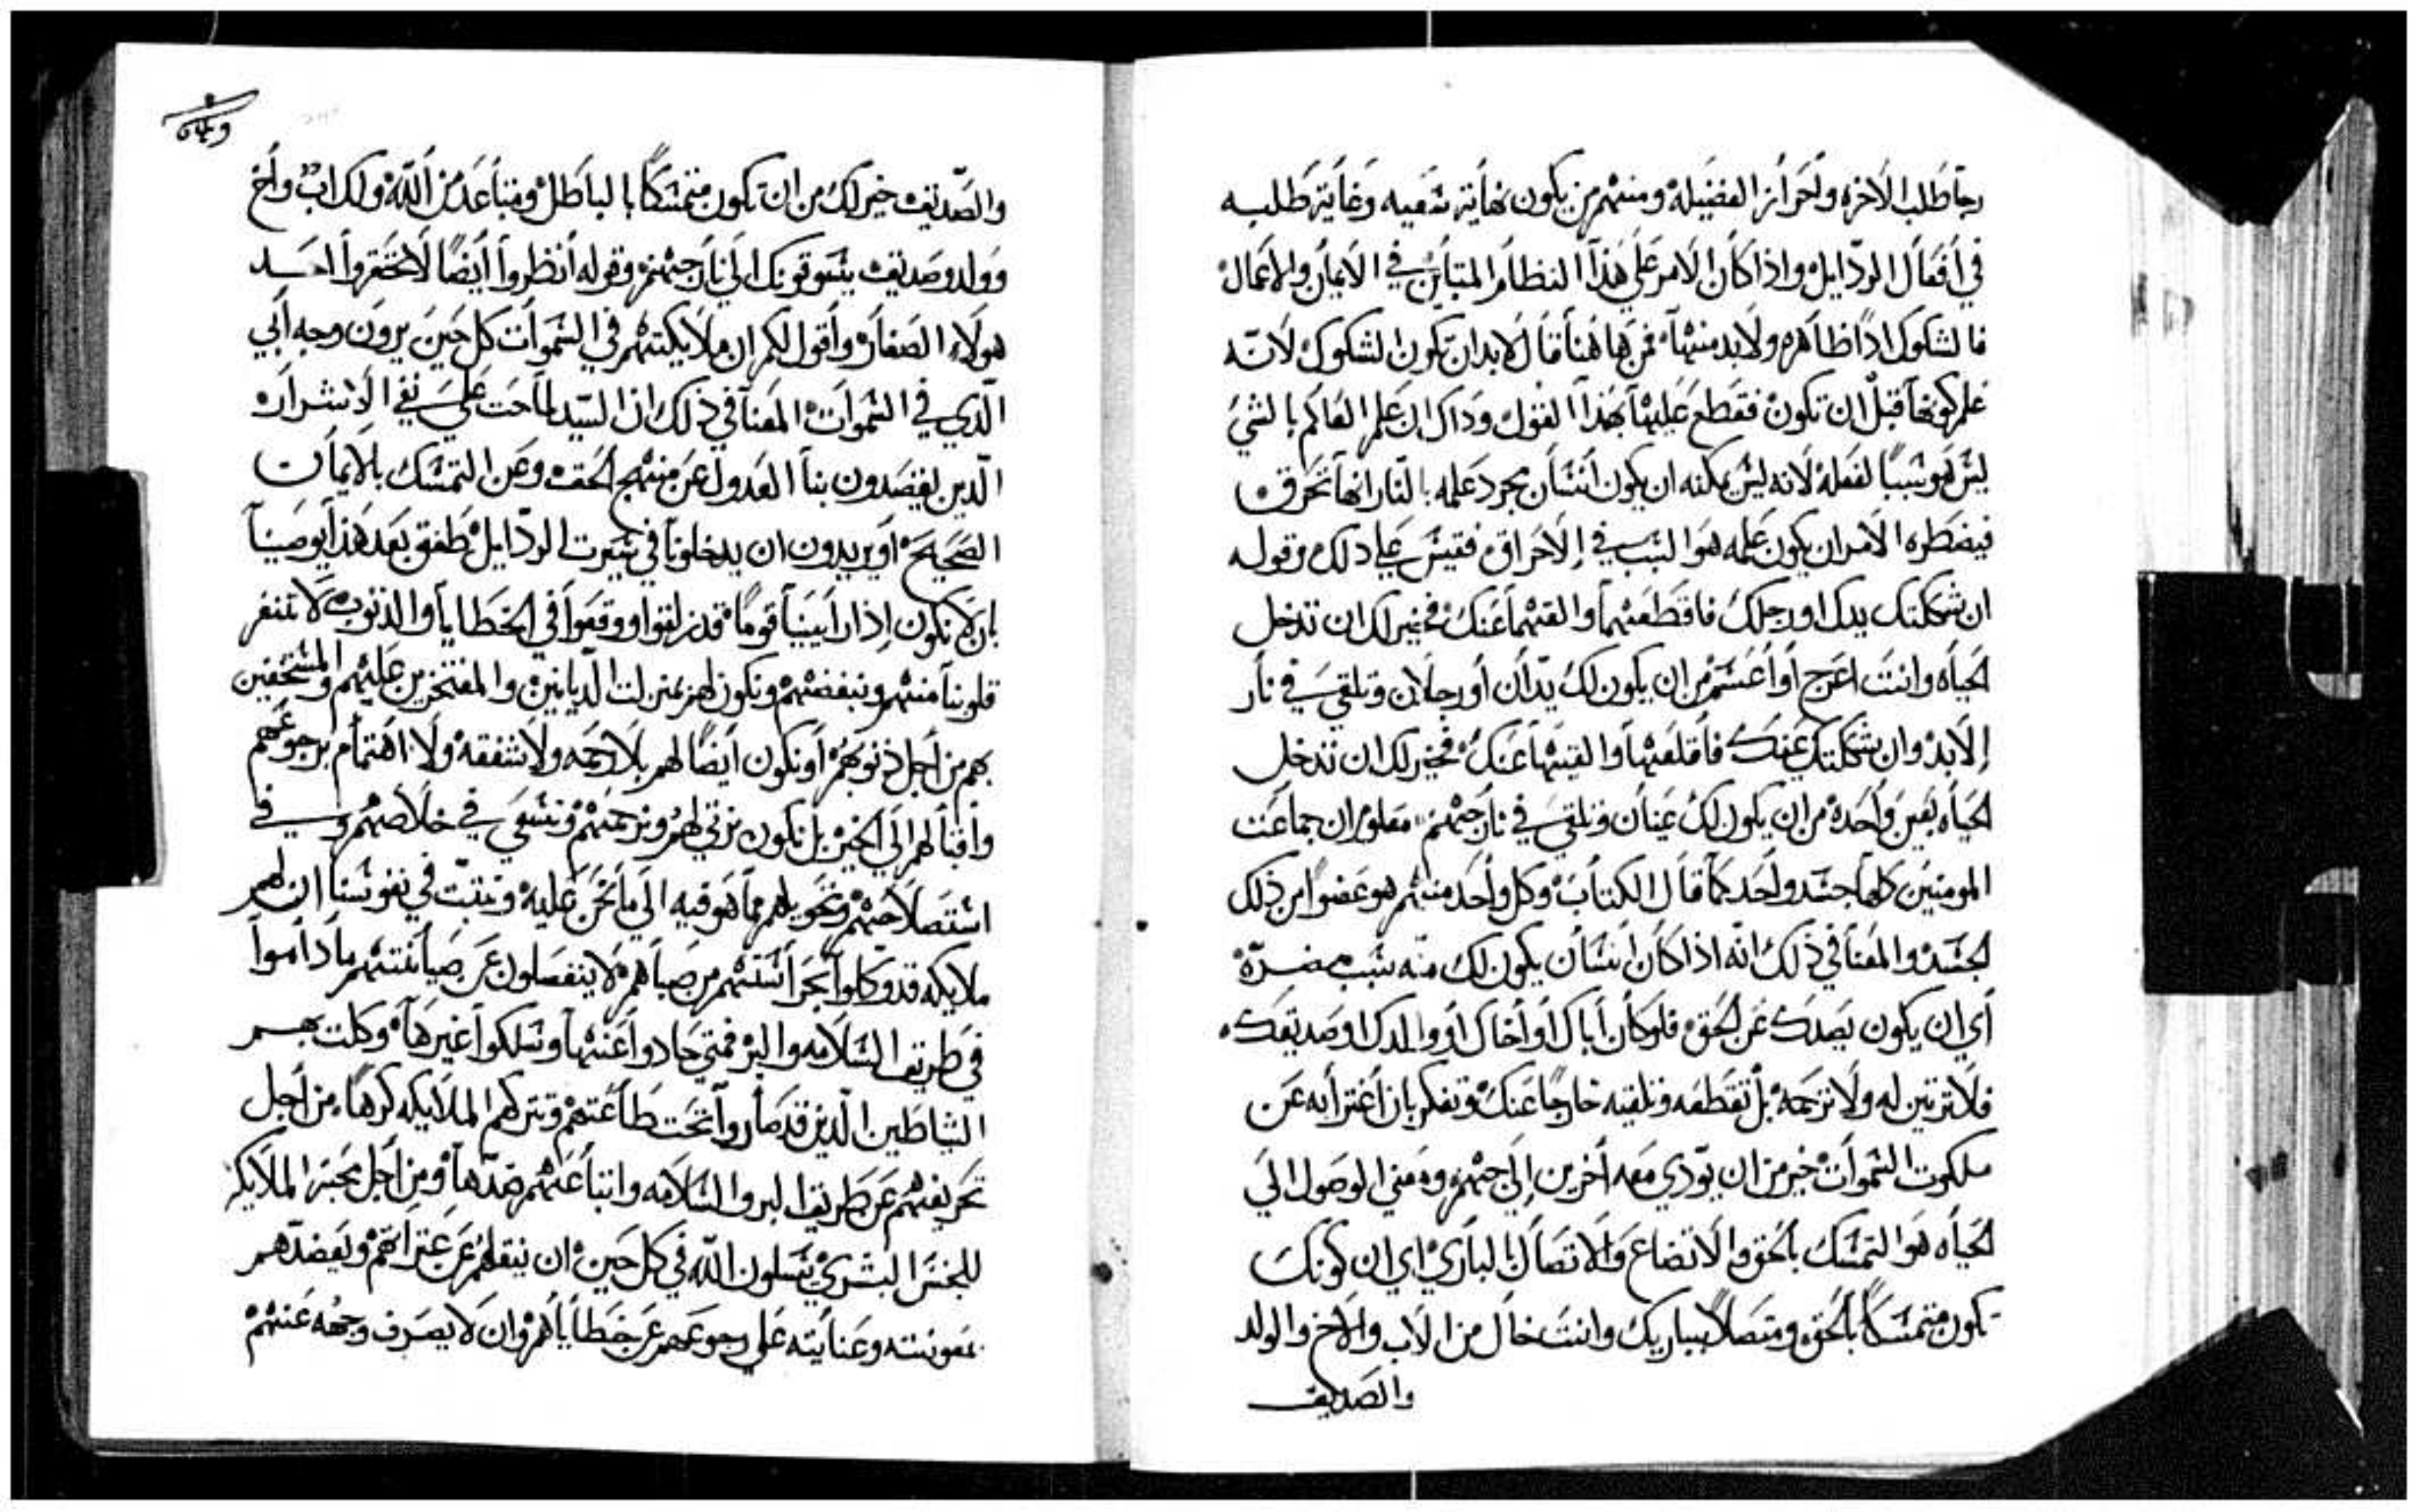 رجا طلب الاخره ولحراز الفضيله ومنهم من يكون نهاية شعيه وغاية طلبه
في افعال الردايل واذا كان الامر علي هذا النظام المتباين في الايمان والاعمال
فالشكوك اذًا ظاهره ولابد منها فمن هاهنا قال لابد ان تكون الشكوك لانه
علم كونها قبل ان تكون فقطع عليها بهذا القول وداك ان علم العالم بالشي
ليش هو شببًا لفعله لانه ليش يمكنه ان يكون انشان بمجرد علمه بالنار انها تحرق
فيضطره الامر ان يكون علمه هو الشبب في الاحراق فقيش علي دلك وقوله
ان شككتك يدك او رجلك فاقطعهما والقهما عنك فخير لك ان تدخل
الحياه وانت اعرج او اعشم من ان يكون لك يدان او رجلان وتلقي في نار
الابد وان شككتك عينك فاقلعها والقيها عنك فخير لك ان تدخل
الحياه بعين واحده من ان يكون لك عينان وتلقي في نار جهنم معلوم ان جماعت
المومنين كلها جشد واحد كما قال الكتاب وكل واحد منهم هو عضوا من ذلك
الجشد والمعنا في ذلك انه اذا كان انشان يكون لك منه شبب مضرّة
أي ان يكون يصدك عن الحق فلو كان اباك أو أخاك او والدك او صديقك
فلا ترتين له ولا ترحمه بل تقطعه وتلقيه خارجًا عنك وتفكر بان اغترابه عن
ملكوت الشموات خير من ان يوّدي معه أخرين إلي جهنم ومعني الوصول الي
الحياه هو التمشك بالحق والاتضاع والاتصال بالباري اي ان كونك
تكون متمشكًا بالحق ومتصلًا بباريك وانت خال من الاب والاخ والولد
والصديق
والصّديق خير لك من ان تكون متمشكًا بالباطل ومتباعد من الله ولك اب وأخ
وولد وصديق يشوقونك الي نار جهنم وقوله أنظروا أيضًا لا تحتقروا احد
هولاء الصغار وأقول لكم ان ملايكتهم في الشموات كل حين يرون وجه أبي
الّدي في الشموات المعنا في ذلك ان السيد لما حت علي نفي الاشرار
الّدين يقصدون بنا العدول عن منهج الحق وعن التمشك بالايمان
الصحيح أو يريدون ان يدخلونا في شيرت الردّايل طفق بعد هذا يوصينا
بان لا نكون إذا رأيينا قومًا قد زلقوا ووقعوا في الخطايا والذنوب لا تنفر
قلوبنا منهم ونبغضهم ونكون لهم بمنزلت الديانين والمفتخرين عليهم والمشتخفين
بهم من أجل ذنوبهم أو نكون أيضًا لهم بلا رحمه ولا شفقه ولا اهتمام برجوعهم
واقبالهم إلي الخير بل نكون نرتي لهم ونرحمهم ونشعي في خلاصهم وفي
اشتصلاحهم وتحويلهم مما هم فيه الي ما نحن عليه ونتبّت في نفوشنا ان لهم
ملايكه قد وكلوا بحراشتهم من صباهم لا ينفصلون عن صيانتهم ما داموا
في طريق الشلامه والبر فمتي حادوا عنها وشلكوا غيرها وكلت بهم
الشياطين الّدين قد صاروا تحت طاعتهم وتتركهم الملايكه كرهًا من أجل
تحريفهم عن طريق البر والشلامه واتباعهم ضدّها ومن أجل محبة الملايكه
للجنش البشري يشلون الله في كل حين ان ينقلهم عن عتراتهم ويعضدهم
بمعونته وعنايته علي رجوعهم عن خطاياهم وان لا يصرف وجهه عنهم